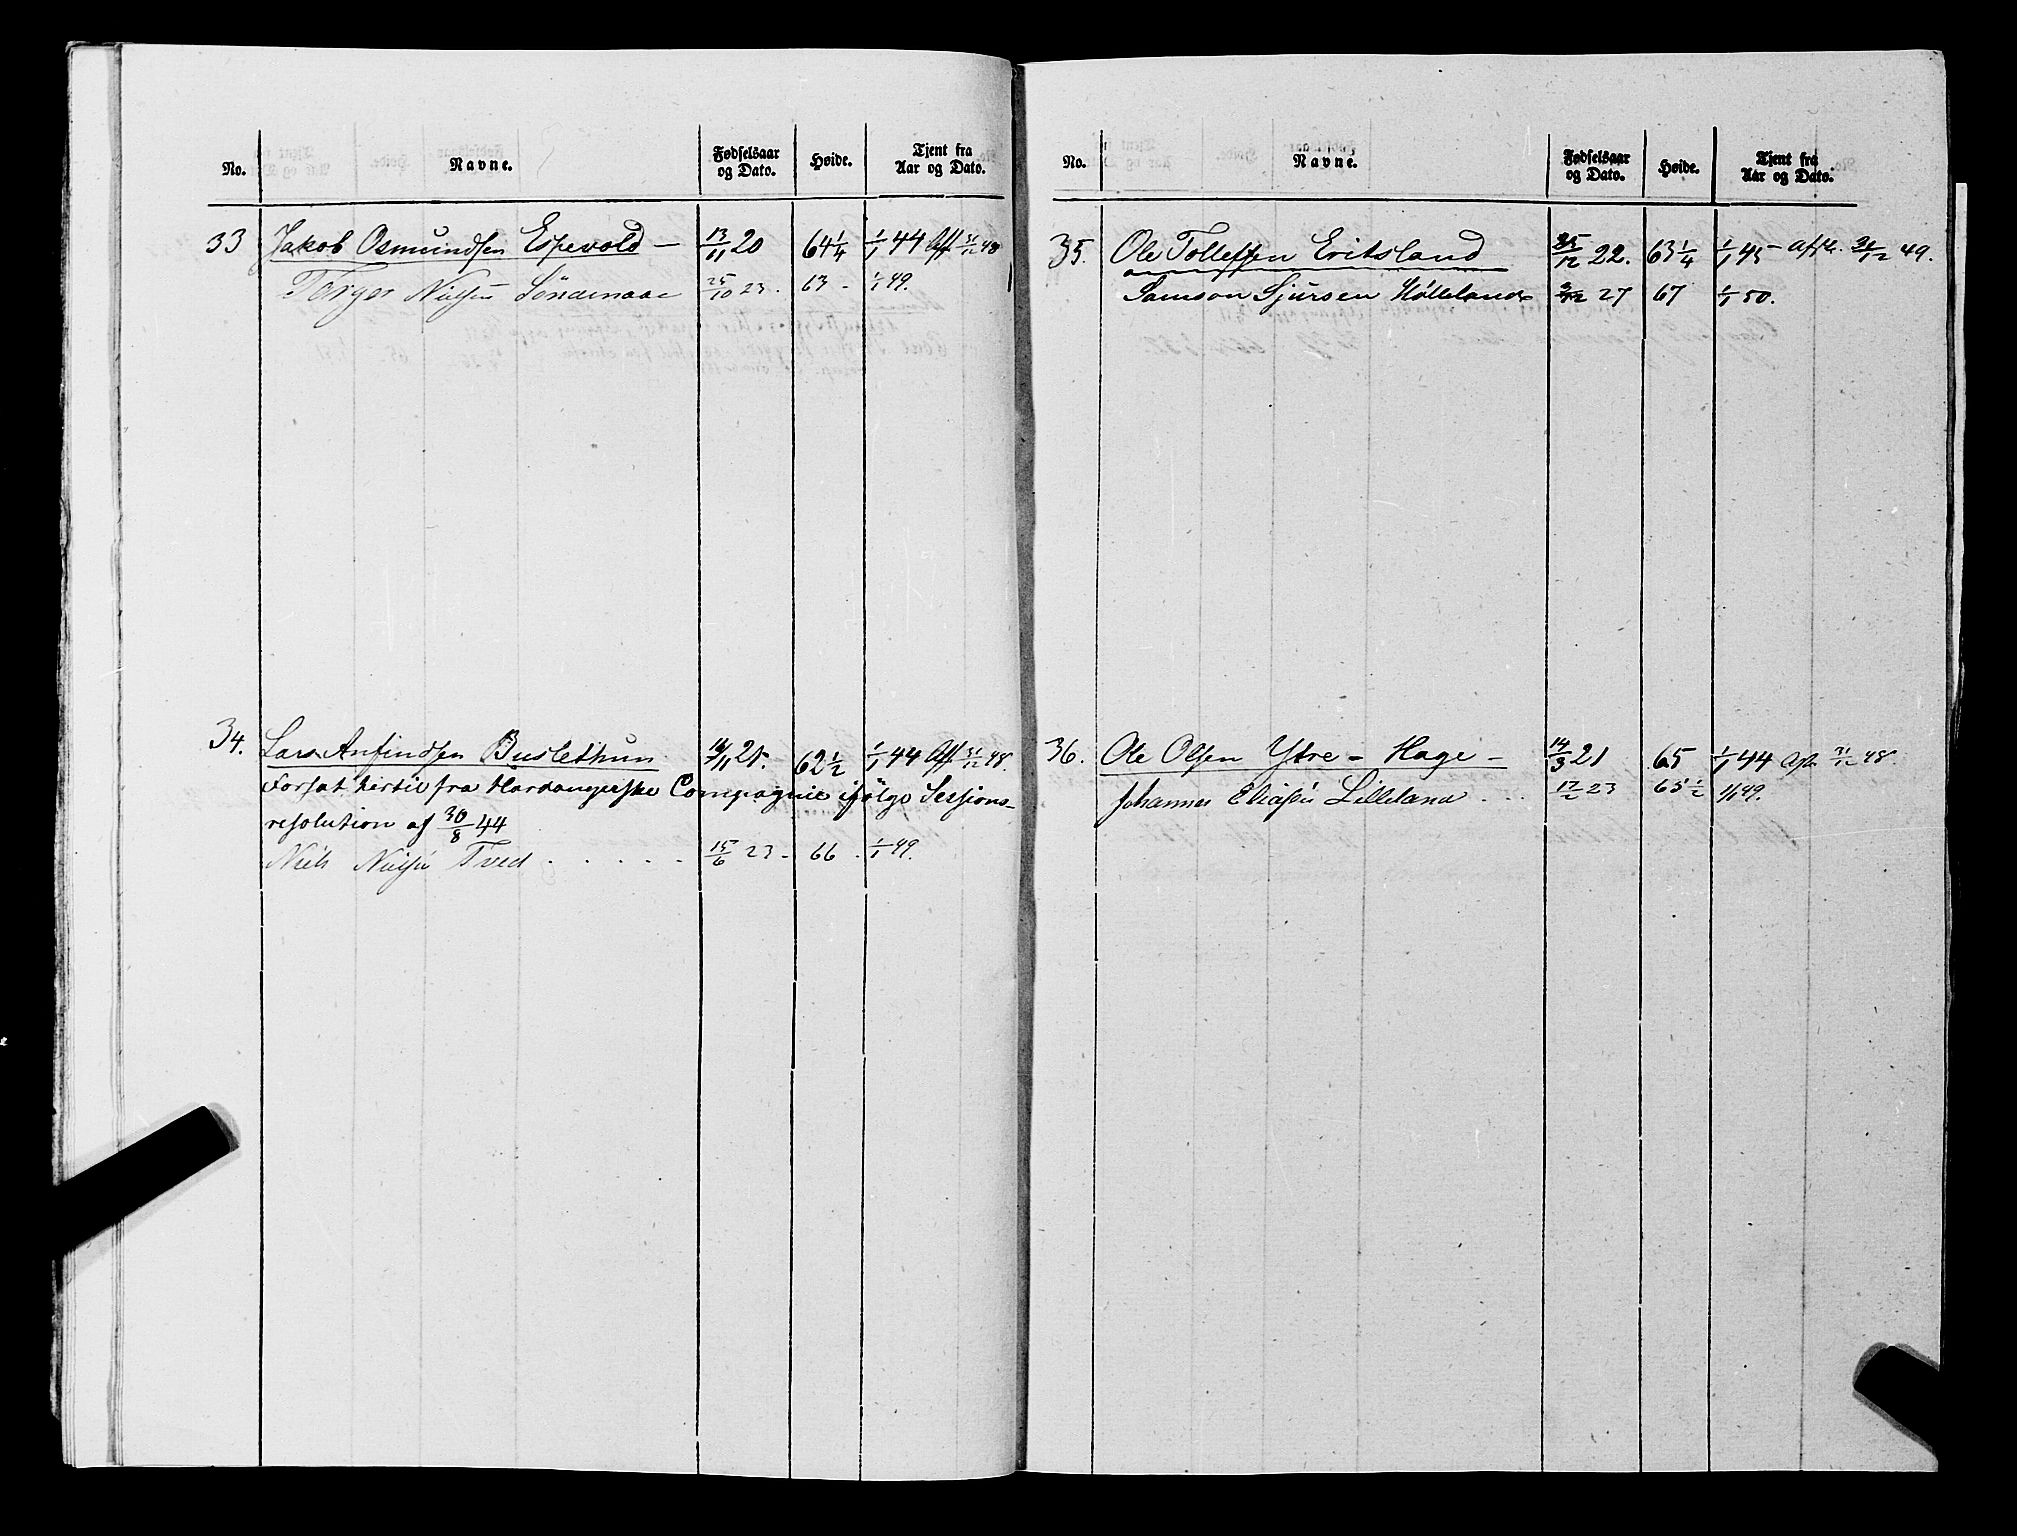 No. Navne. Fødselsaar og Dato. Høide. Tjent fra Aar og Dato.
33 Jakob Osmundsen Espevold — 13/11 20 64 1/4 1/1 44 Aff 31/12 48
Torger Nielsen Söndenaae 25/10 23. 63 - 1/1 49.
34. Lars Anfindsen Buslethun 62 1/2 1/1 44 Aff 31/12 48.
Forsat hertil fra Hardangerske Compagnie ifølge Sessions-
resolution af 30/8 44
Niels Nielsen Tved . . . . . 15/6 23 - 66 - 1/1 49.
No. Navne. Fødselsaar og Dato. Høide. Tjent fra Aar og Dato.
35. Ole Tollefsen Eritsland 25/12 22. 63 1/4 1/1 45 - Afsk. 31/12 49.
Samson Sjursen Hölleland 27 67 1/1 50.
36. Ole Olsen Ytre - Hage - 14/3 21 65 1/1 44 Afsk. 31/12 48.
Johannes Eliasen Lilleland . . . 17/2 23 65 1/2 1/1 49.